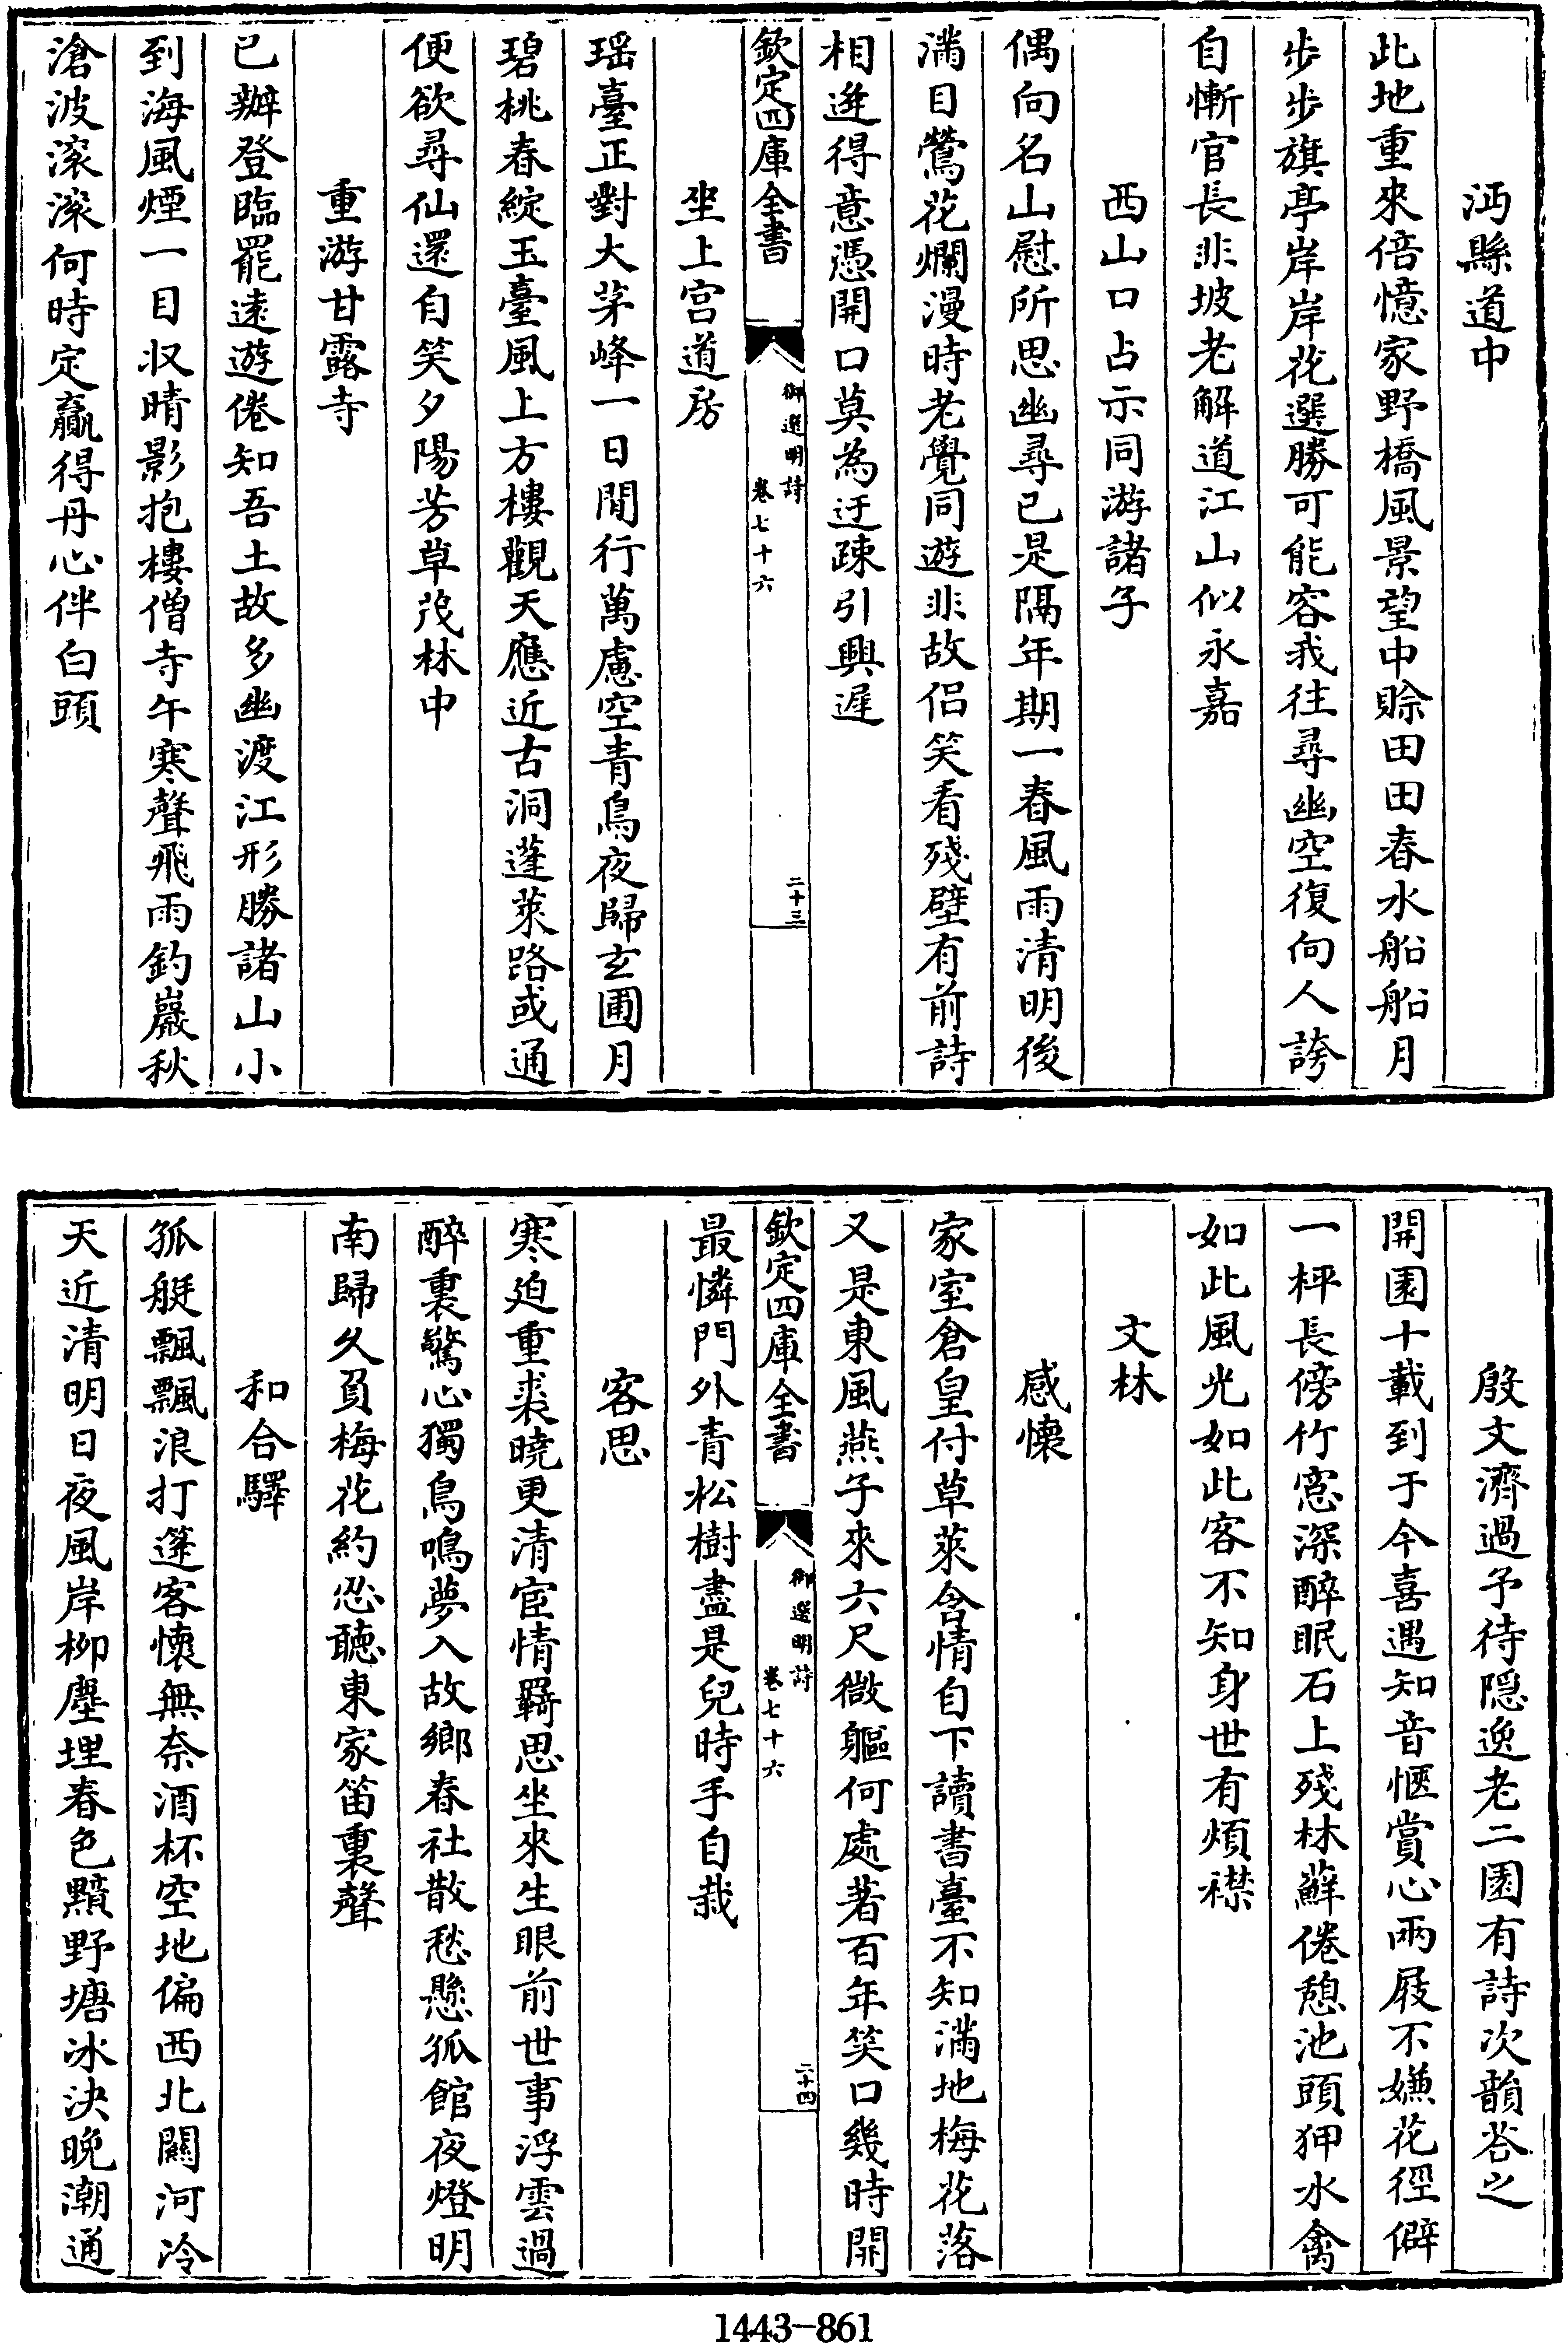 沔縣道中
此地重來倍憶家野橋風景望中賒田田春水船船月
步步旗亭岸岸花選勝可能容我往尋幽空復向人誇
自慚官長非坡老解道江山似永嘉
西山口占示同游諸子
偶向名山慰所思幽尋已是隔年期一春風雨清明後
滿目鶯花爛漫時老覺同遊非故侶笑看殘壁有前詩
相逢得意憑開口莫為迂疎引興遲
欽定四庫全書
御選明詩
卷七十六
二十三
坐上宫道房
瑶臺正對大茅峰一日閒行萬慮空青鳥夜歸玄圃月
碧桃春綻玉臺風上方樓觀天應近古洞蓬萊路或通
便欲尋仙還自笑夕陽芳草茂林中
重游甘露寺
已辦登臨罷逺遊倦知吾土故多幽渡江形勝諸山小
到海風煙一目收晴影抱樓僧寺午寒聲飛雨釣巖秋
滄波滚滚何時定贏得丹心伴白頭
殷文濟過予待隠逸老二園有詩次韻答之
開園十載到于今喜遇知音愜賞心兩屐不嫌花徑僻
一枰長傍竹窻深醉眠石上殘林蘚倦憩池頭狎水禽
如此風光如此客不知身世有煩襟
文林
感懷
家室倉皇付草萊含情自下讀書臺不知滿地梅花落
又是東風燕子來六尺微軀何處著百年笑口幾時開
欽定四庫全書
御選明詩
卷七十六
二十四
最憐門外青松樹盡是兒時手自栽
客思
寒廹重裘曉更清宦情羇思坐來生眼前世事浮雲過
醉裏驚心獨鳥鳴夢入故鄉春社散愁懸孤館夜燈明
南歸久負梅花約忍聽東家笛裏聲
和合驛
孤艇飄飄浪打篷客懷無奈酒杯空地偏西北闗河冷
天近清明日夜風岸柳塵埋春色黯野塘冰決晚潮通
1443-861